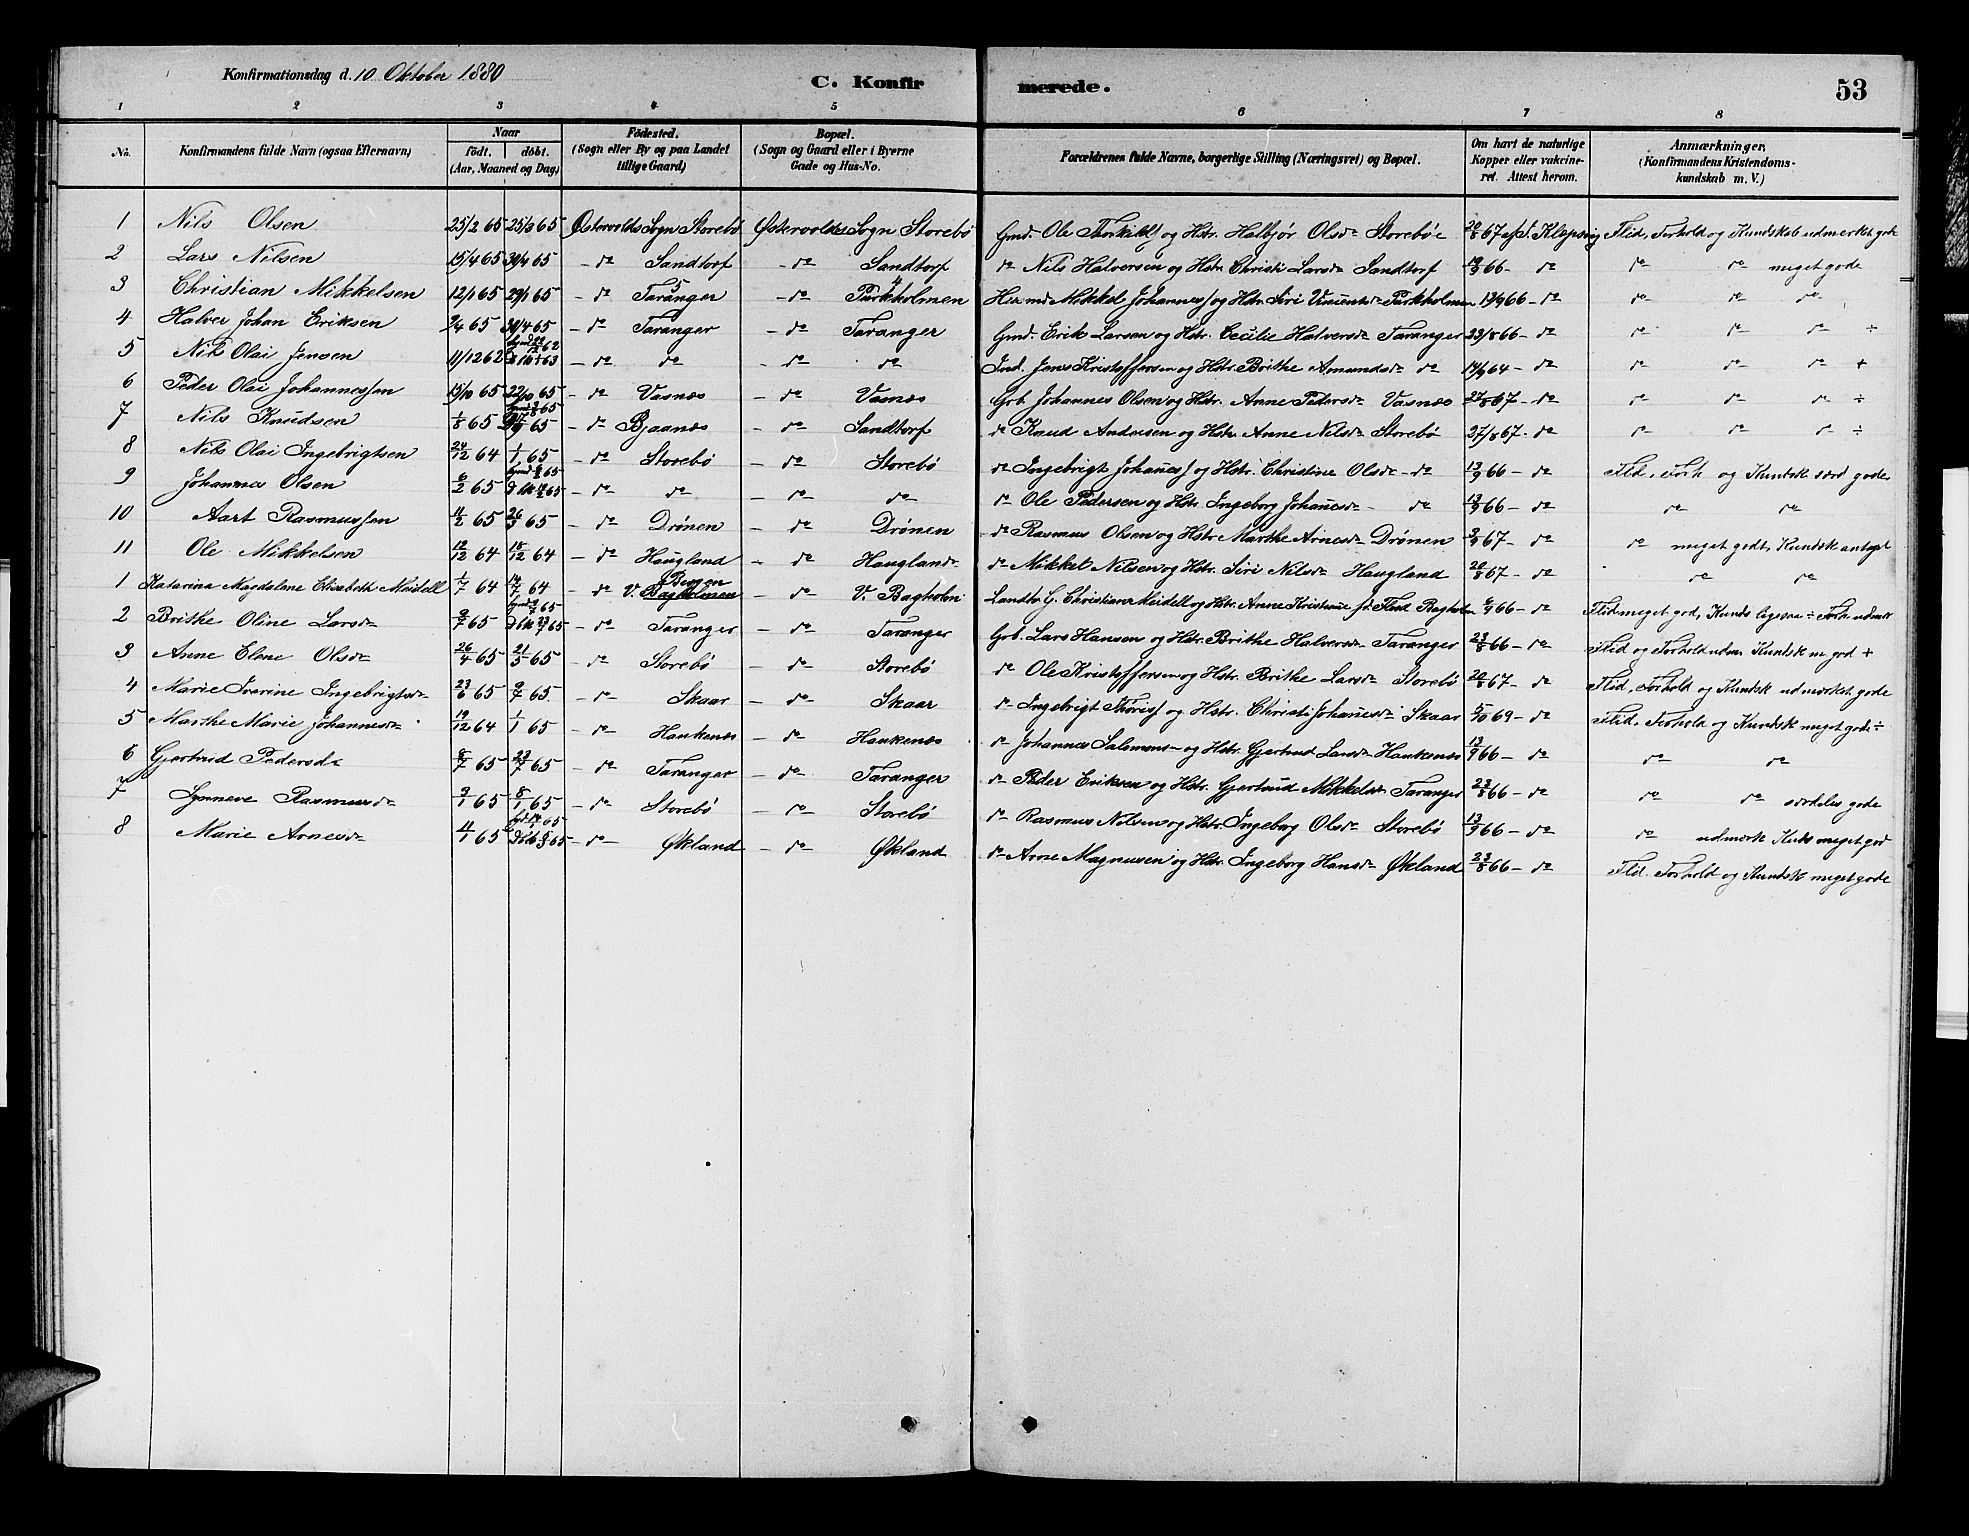 Konfirmationsdag d. 10 Oktober 1880 C. Konfirmerede. 53
1 2 3 4 5 6 7 8
No. Konfirmandens fulde Navn (ogsaa Efternavn) Naar födt. döbt. (Aar, Maaned og Dag) Födested. (Sogn eller By og paa Landet tillige Gaard) Bopæl. (Sogn og Gaard eller i Byerne Gade og Hus-No. Forældrenes fulde Navne, borgerlige Stilling (Næringsvei) og Bopæl. Om havt de naturlige Kopper eller vakcineret. Attest herom. Anmærkninger, (Konfirmandens Kristendomskundskab m. V.)
1 Nils Olsen 25/2 65 25/3 65 Østervolds Sogn Storebø Østervolds Sogn Storebø Gmd. Ole Thorkilds og Hstr. Halbjør Olsdr Storebø 20/8 67 af J. Klepsvig Flid, Forhold og Kundskab udmerket gode
2 Lars Nilsen 15/4 65 30/4 65 - do Sandtorf - do Sandtorf do Nils Halversen og Hstr. Christi Larsdr Sandtorf 19/9 66 - do do do meget gode
3 Christian Mikkelsen 12/1 65 29/1 65 - do Taranger - do Parkholmen Huusmd Mikkel Johannes og Hstr. Siri Vincentsdr Parkholmen 13/9 66 - do do do do
4 Halver Johan Eriksen 9/4 65 30/4 65 - do Taranger - do Taranger Gmd. Erik Larsen og Hstr. Cecilie Halversdr Taranger 23/8 66 - do do do do ÷
5 Nils Olai Jensen 11/12 62 - do do - do do Ind. Jens Kristoffersen og Hstr. Brithe Amundsdr do 19/9 64 - do do do do +
6 Peder Olai Johannessen 15/10 65 22/10 65 - do Vasnæs - do Vasnæs Grb Johannes Olsen og Hstr. Anne Pedersdr Vasnæs 27/8 67 - do do do do ÷
7 Nils Knudsen 1/8 65 65 - do Bjaanæs - do Sandtorf do Knud Andersen og Hstr. Anne Nilsdr Storebø 27/8 67 - do do do do ÷
8 Nils Olai Ingebrigtsen 24/12 64 1/1 65 - do Storebø - do Storebø do Ingebrigt Johanes og Hstr. Christine Olsdr - do 13/9 66 - do Flid, Forh og Kundsk særd gode
9 Johannes Olsen 6/2 65 - do do - do do do Ole Pedersen og Hstr Ingeborg Johanesdr - do 13/9 66 - do do do
10 Aart Rasmussen 11/2 65 26/3 65 - do Drönen - do Drönen do Rasmus Olsen og Hstr Marthe Arnesdr Drönen 3/9 67 - do do meget godt, Kundsk antaget
11 Ole Mikkelsen 12/12 64 18/12 64 - do Haugland - do Haugland do Mikkel Nilsen og Hstr. Siri Nilsdr Haugland 20/8 67 - do do do
1 Katarina Magdalene Elisabeth Meidell 1/7 64 14/7 64 - do V. Bagholmen Bergen - do V. Bagholm Landhr G. Christian Meidell og Hstr. Anne Kristine f. Flood Bagholm 6/9 66 - do Flid meget god, Kunds ligesaa ÷ Forh udmer
2 Brithe Oline Larsdr 9/7 65 - do Taranger - do Taranger Grb. Lars Hansen og Hstr. Brithe Halversdr Taranger 23/8 66 - do Flid og Forhold udm Kundsk m god +
3 Anne Elene Olsdr 26/4 65 21/5 65 - do Storebø - do Storebø do Ole Kristoffersen og Hstr. Brithe Larsdr Storebø 20/8 67 - do Flid, Forhold og Kundsk udmærket gode
4 Marie Iverine Ingebrigtsdr 23/6 65 9/7 65 - do Skaar - do Skaar do Ingebrigt Thoris og Hstr. Christi Johanesdr Skaar 5/10 69 - do Flid, Forhold og Kundsk meget gode ÷
5 Marthe Marie Johannesdr 19/12 64 1/1 65 - do Haukenæs - do Haukenæs do Johannes Salemons - og Hstr. Gjertrud Larsdr Haukenæs 13/9 66 - do do do
6 Gjertrud Pedersdr 8/7 65 23/7 65 - do Taranger - do Taranger do Peder Eriksen og Hstr. Gjertrud Mikkelsdr Taranger 23/8 66 - do do do særdeles gode
7 Synneve Rasmusdr 3/1 65 8/1 65 - do Storebø - do Storebø do Rasmus Nilsen og Hstr. Ingeborg Olsdr Storebø 13/9 66 - do do udmærk Kunds meget god
8 Marie Arnesdr 11/1 65 - do Økland - do Økland do Arne Magnusen og Hstr. Ingeborg Hansdr Økland 23/8 66 - do Flid. Forhold og Kundsk meget gode